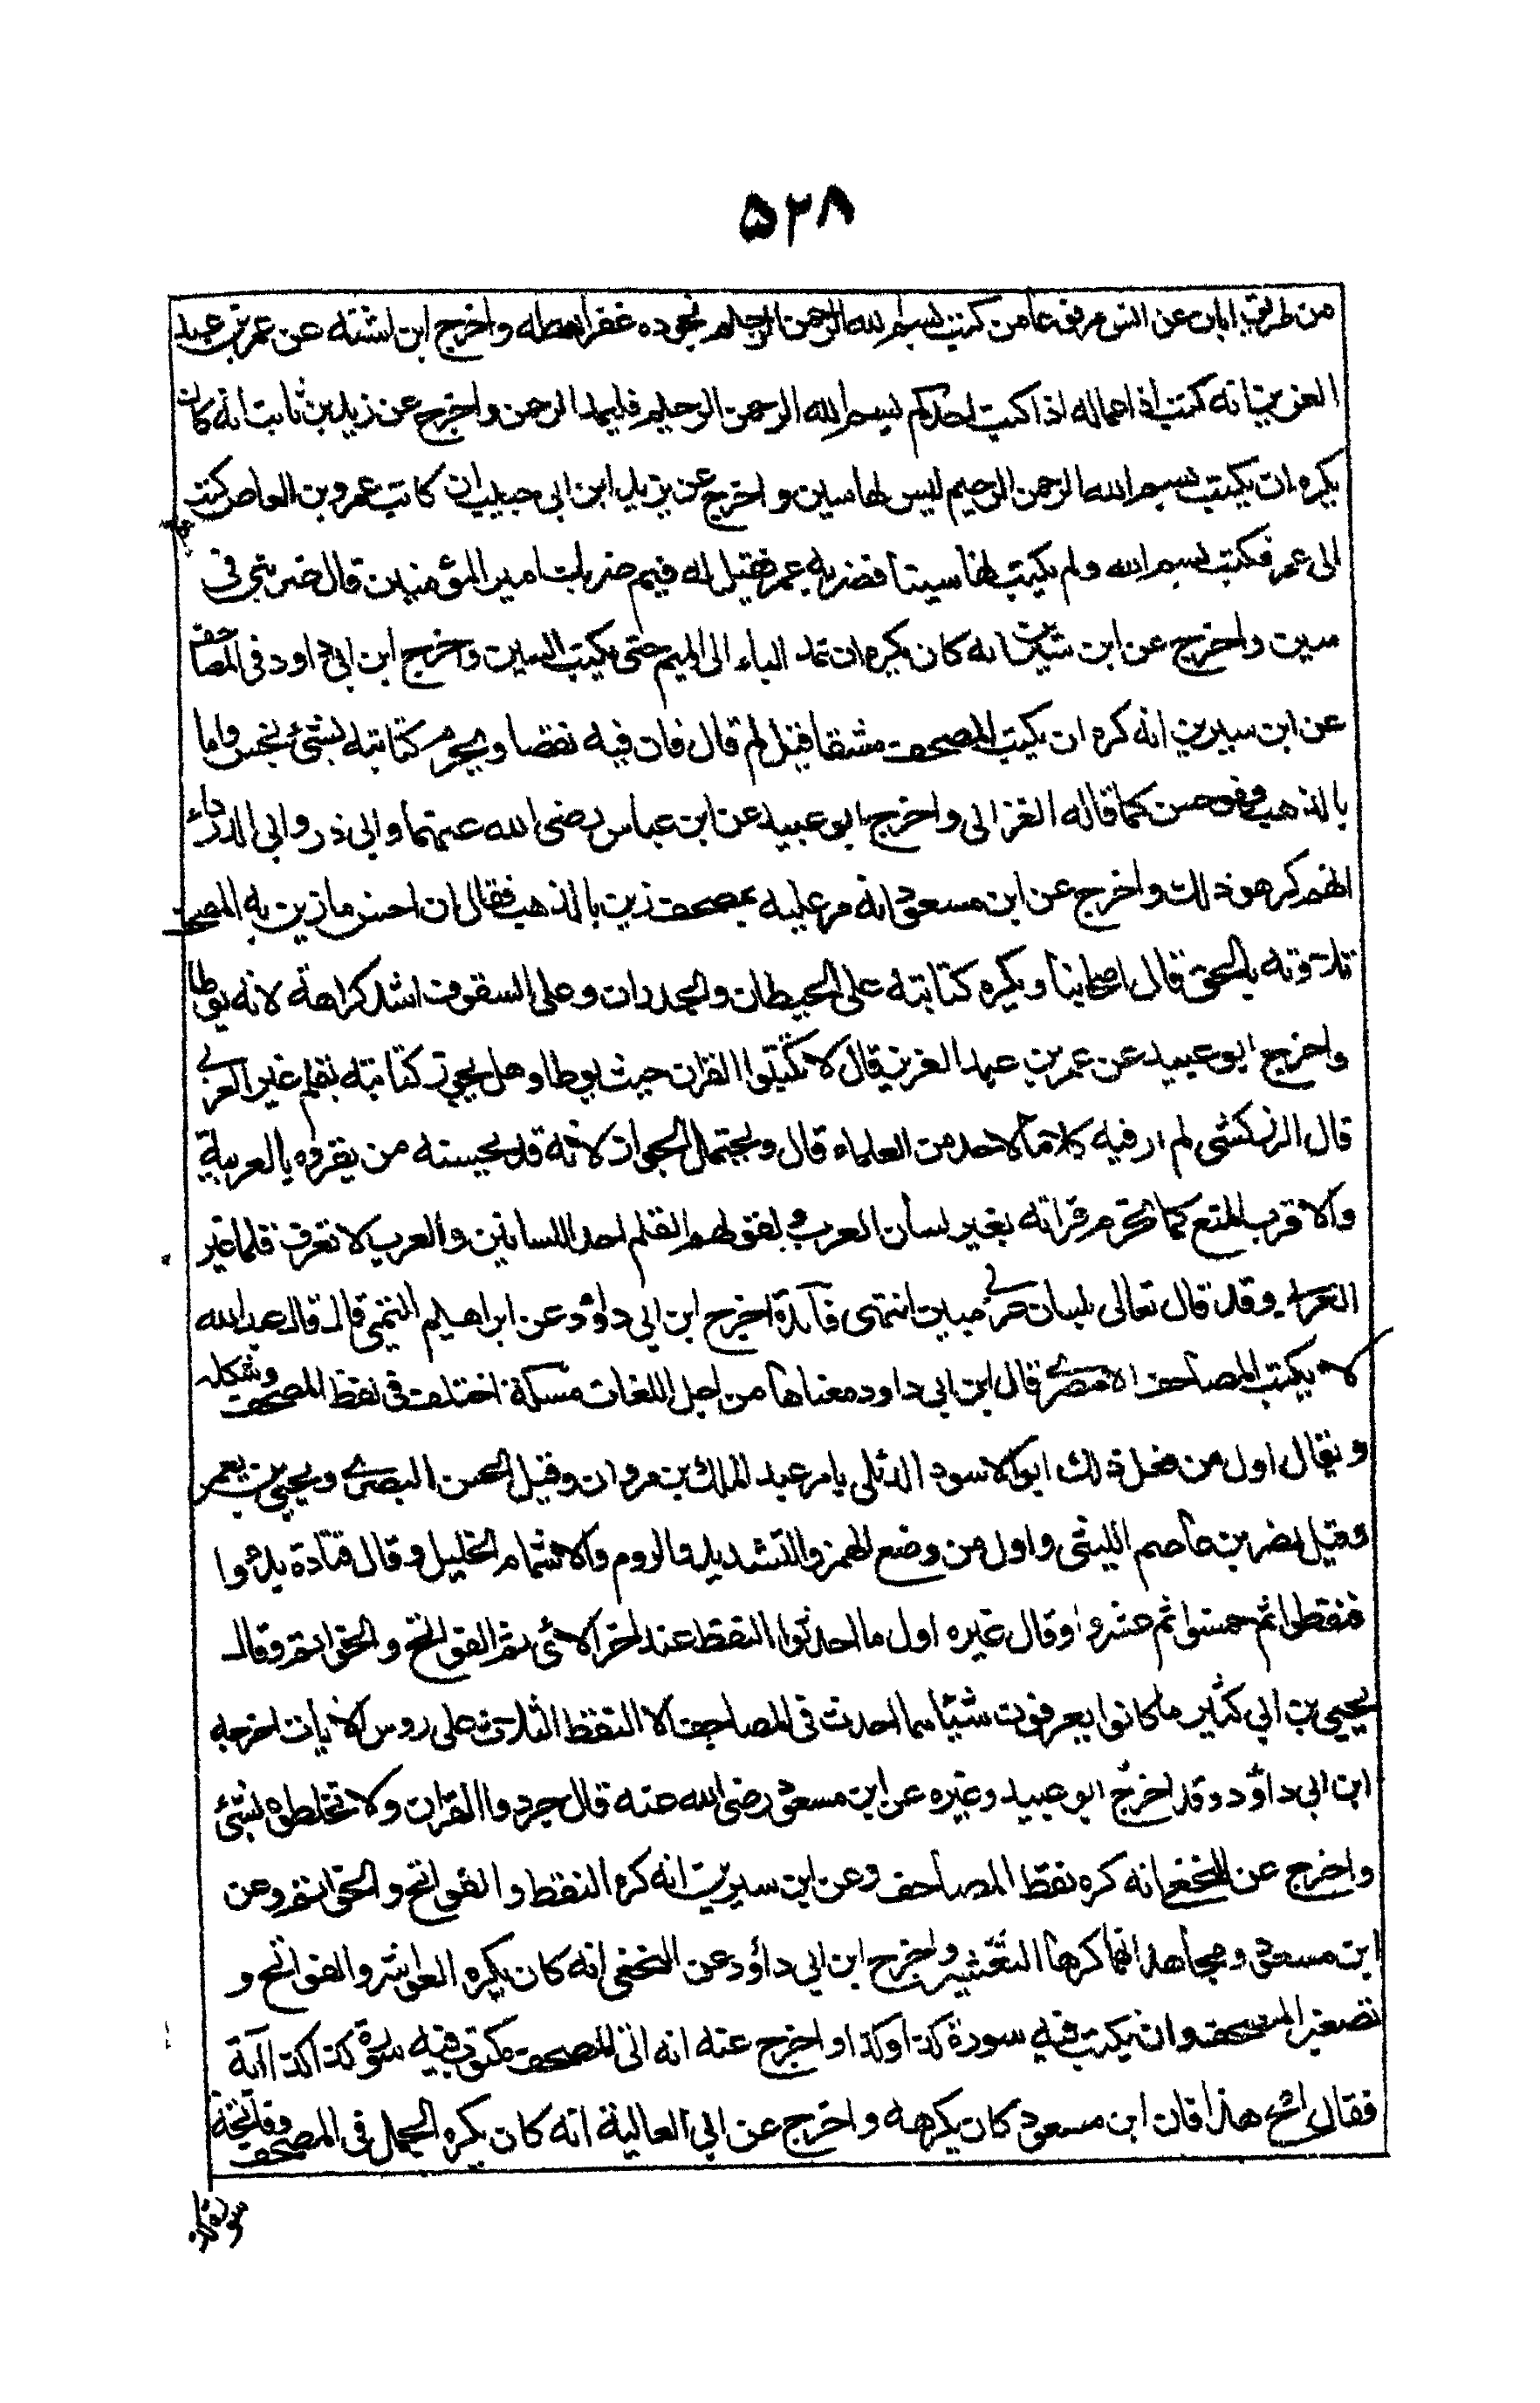 ۵۲۸
من طريق ابان عن انس مرفوعا من كتب بسم الله الرحمن الرحيم مجوده غفر الله له واخرج ابن اشته عن عمر بن عبد
العزيز انه كتب الى عماله اذا كتب احدكم بسم الله الرحمن الرحيم فليمد الرحمن واخرج عن زيد بن ثابت انه كان
يكره ان يكتب بسم الله الرحمن الرحيم ليس لها سين واخرج عن يزيد ابن ابى حبيب ان كاتب عمرو بن العاص كتب
الى عمر فكتب بسم الله ولم يكتب لها سينا فضربه عمر فقيل له فيم ضربك امير المؤمنين قال ضربنى فى
سين واخرج عن ابن سيرين انه كان يكره ان تمد الباء الى الميم حتى يكتب السين واخرج ابن ابى داود فى المصاحف
عن ابن سيرين انه كره ان يكتب المصحف مشقا قيل لم قال فان فيه نقصا ويحرم كتابته بشئ نجس واما
بالذهب فهو حسن كما قاله الغزالى واخرج ابو عبيد عن ابن عباس رضى الله عنهما وابى ذر وابى الدرداء
انهم كرهو ذلك واخرج عن ابن مسعود انه مر عليه بمصحف زين بالذهب فقال ان احسن ما زين به المصحف
تلاوته بالحق قال اصحابنا ويكره كتابته على الحيطان والجدران وعلى السقوف اشد كراهة لانه يوطا
واخرج ابو عبيد عن عمر بن عبد العزيز قال لا تكتبوا القران حيث يوطا وهل يجوز كتابته بقلم غير العربى
قال الزركشى لم ار فيه كلاما لاحد من العلماء قال ويحتمل الجواز لانه قد يحسنه من يقروه بالعربية
والاقرب المنع كما تحرم قراته بغير لسان العرب ولقولهم القلم احد اللسانين والعرب لا تعرف قلما غير
العربى وقد قال تعالى بلسان عربى مبين انتهى فائدة اخرج ابن ابى داؤد عن ابراهيم التيمى قال قال عبد الله
لا يكتب المصاحف الا مضرى قال ابن ابى داود معناها من اجل اللغات مسئلة اختلف فى نقط المصحف وشكله
ويقال اول من فعل ذلك ابو الاسود الدئلى بامر عبد الملك بن مروان وقيل الحسن البصرى ويحيى بن يعمر
وقيل نضر بن عاصم الليثى واول من وضع الهمز والتشديد والروم والاشمام الخليل وقال قتادة بدئوا
فنقطوا ثم خمسوا ثم عشروا وقال غيره اول ما احدثوا النقط عند اخر الآى ثم الفواتح والخواتم وقال
يحيى بن ابى كثير ما كانوا يعرفون شيئا مما احدث فى المصاحف الا النقط الثلاث على روس الآيات اخرجه
ابن ابى داؤد وقد اخرج ابو عبيد وغيره عن ابن مسعود رضى الله عنه قال جردوا القران ولا تخلطوه بشئ
واخرج عن النخعى انه كره نقط المصاحف وعن ابن سيرين انه كره النقط والفواتح والخواتم وعن
ابن مسعود ومجاهد انهما كرها التعشير واخرج ابن ابى داؤد عن النخعى انه كان يكره العواشر والفواتح و
تصغير المصحف وان يكتب فيه سورة كذا وكذا واخرج عنه انه اتى بمصحف مكتوب فيه سورة كذا كذا آية
فقال امح هذا فان ابن مسعود كان يكرهه واخرج عن ابى العالية انه كان يكره الجمل فى المصحف وفاتحة